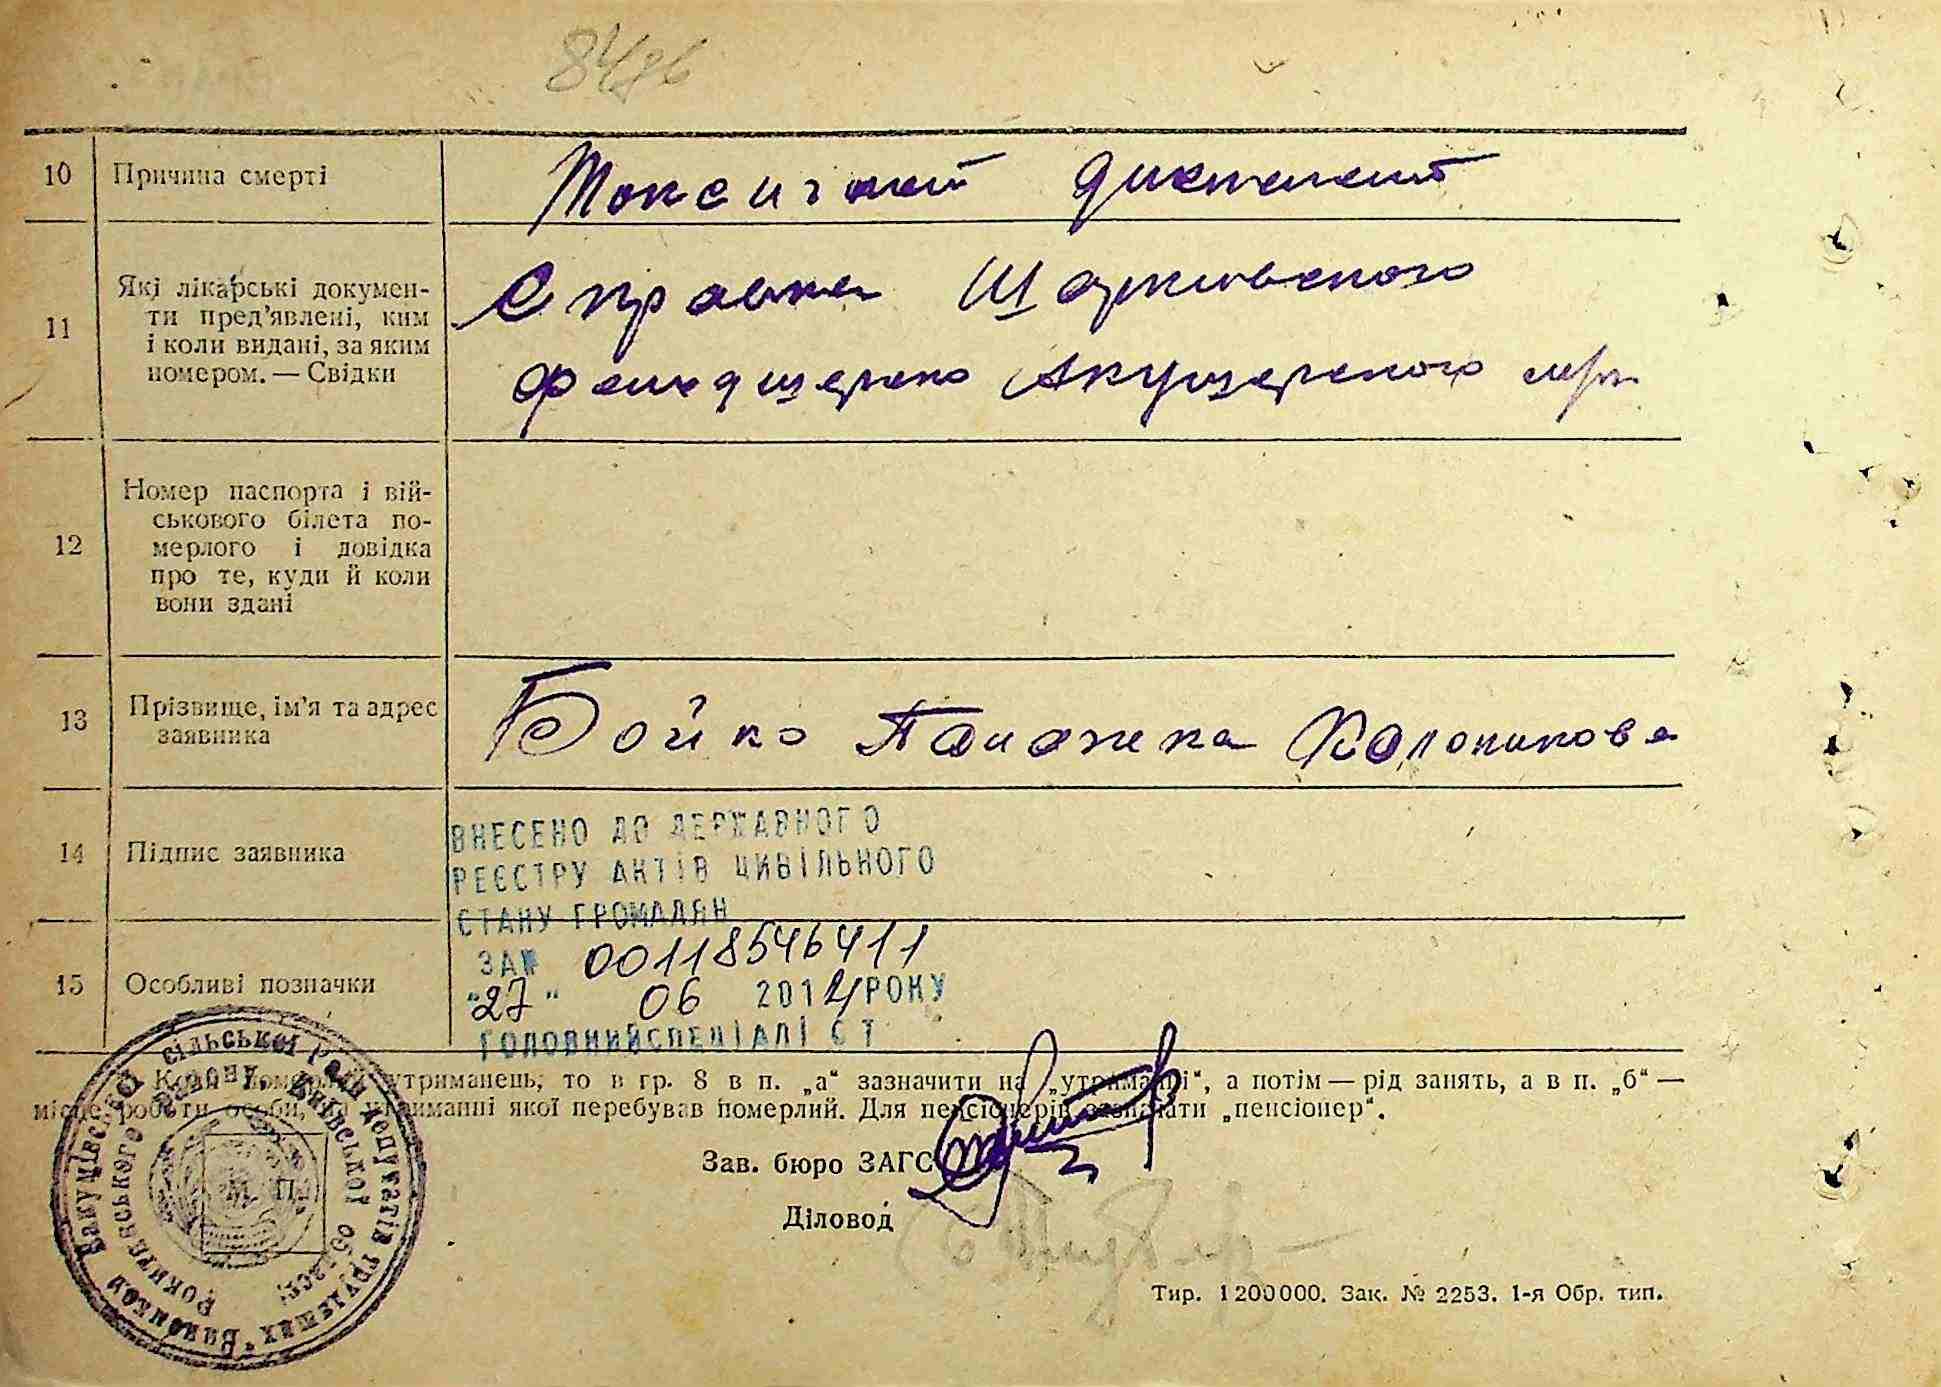 8486
10 Причина смерті Токсичний
11 Які лікарські докумен-
ти пред'явлені, ким
і коли видані, за яким
номером. — Свідки
Справка Шарківського
фельдшерсько Акушерського
12 Номер паспорта і вій-
ськового білета по-
мерлого і довідка
про те, куди й коли
вони здані
13 Прізвище, ім'я та адрес
заявника
Бойко
14 Підпис заявника
ВНЕСЕНО ДО ДЕРЖАВНОГО
РЕЄСТРУ АКТІВ ЦИВІЛЬНОГО
СТАНУ ГРОМАДЯН
ЗА № 00118546411
15 Особливі позначки
"27" 06 2014 РОКУ
ГОЛОВНИЙ СПЕЦІАЛІСТ
Коли померлий утриманець, то в гр. 8 в п. „а“ зазначити на „утриманні“, а потім — рід занять, а в п. „б“ —
місце роботи особи, на утриманні якої перебував померлий. Для пенсіонерів зазначати „пенсіонер“.
Зав. бюро ЗАГС
Діловод
М. П.
Виконком Бакумівської сільської Ради депутатів трудящих
Рокитнянського району, Київської області
Тир. 1200000. Зак. № 2253. 1-я Обр. тип.